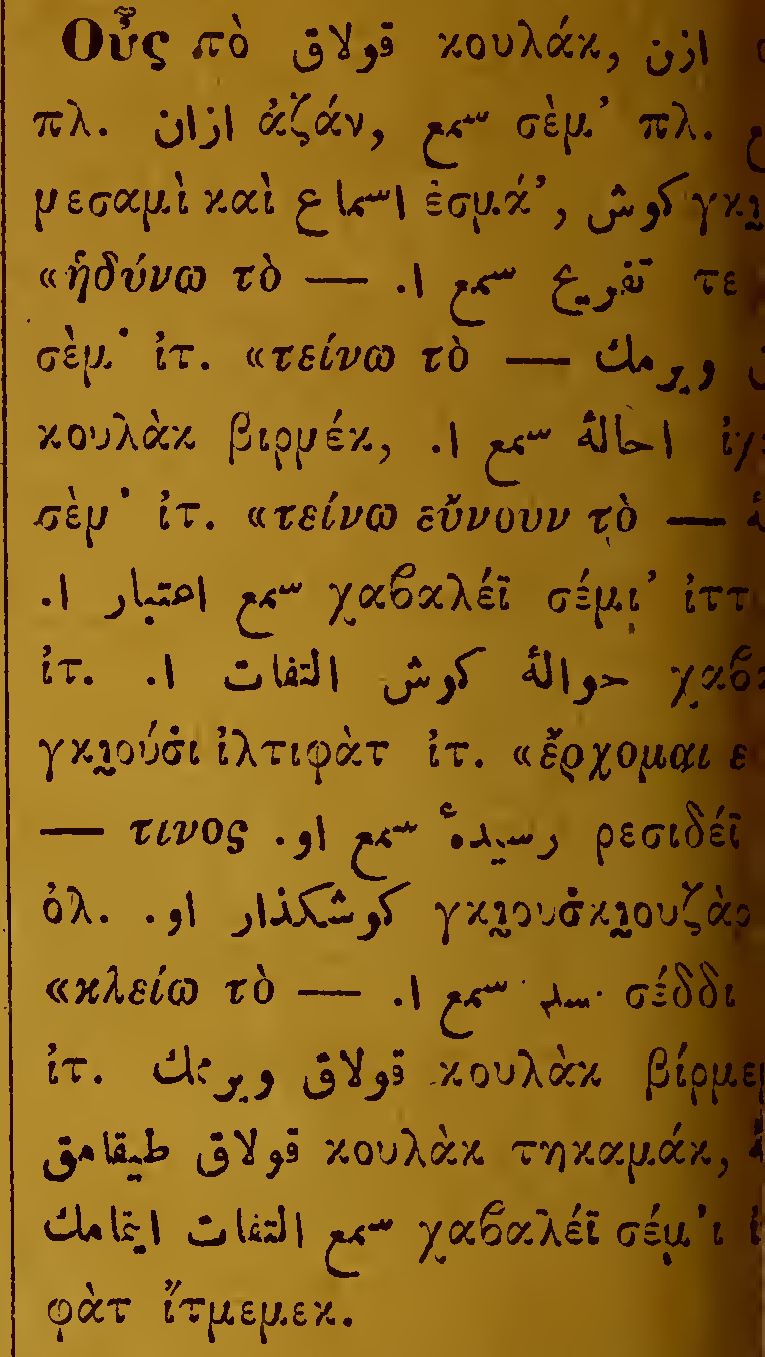 Οὖς πὸ قولاق κουλάκ, ازن
πλ. ازان ἀζάν, سمع σὲμ᾿ πλ.
μεσαμὶ καὶ اسماع ἐσμά᾿, كوش
«ἡδύνω τὸ — تفريع سمع ا. τε
σὲμ᾿ ἰτ. «τείνω τὸ — ويرمك
κουλὰκ βιρμέκ, احالهٔ سمع ا.
σὲμ᾿ ἰτ. «τείνω εὔνουν τὸ —
اعتبار ا. سمع χαβαλέϊ σέμι᾿ ἰττ
ἰτ. حوالهٔ كوش التفات ا.
γκιούσι ἰλτιφὰτ ἰτ. «ἔρχομαι ε
— τινος رسيدهٔ سمع او. ρεσιδέϊ
ὀλ. كوشكذار او. γκιουσκιουζὰρ
«κλείω τὸ — سمع ا. σέδδι
ἰτ. قولاق κουλὰκ
قولاق طيقامق κουλὰκ τηκαμάκ,
سمع التفات ايتمامك χαβαλέϊ σέμ᾿ι
φὰτ ἴτμεμεκ.